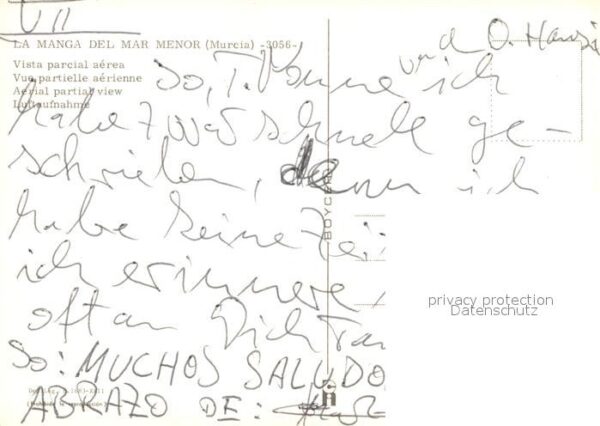 VII
LA MANGA DEL MAR MENOR (Murcia) -3056-
Vista parcial aérea
Vue partielle aérienne
Aerial partial view
Luftaufnahme
O. Hansi
So, T. ich
habe zwar schnell ge-
schrieben, denn ich
habe keine Zei
ich erinnere
oft an Dich
So: MUCHOS SALUDO
ABRAZO DE:
BOYCER
privacy protection
Datenschutz